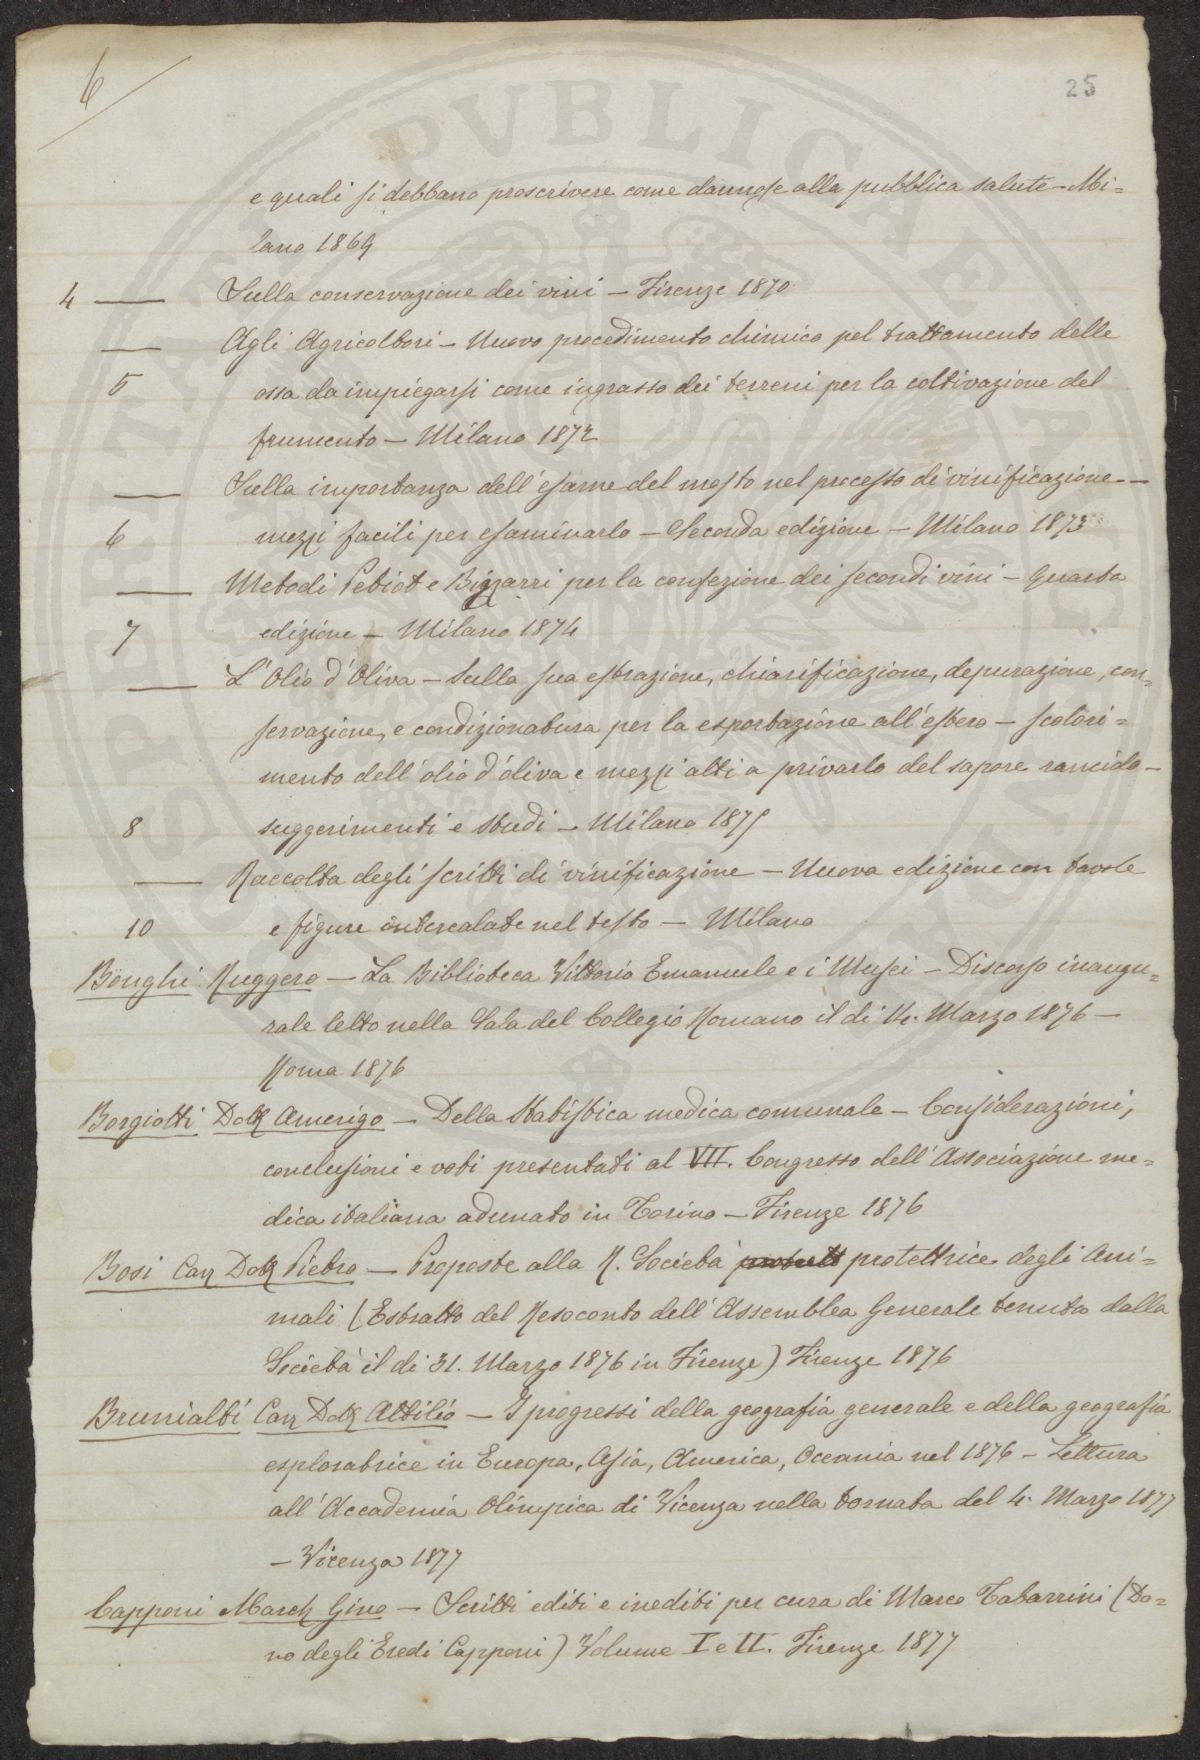 6
25
e quali si debbano proscrivere come dannose alla pubblica salute – Mi=
lano 1869
4 — Sulla conservazione dei vini – Firenze 1870
— Agli Agricoltori – Nuovo procedimento chimico pel trattamento delle
5 ossa da impiegarsi come ingrasso dei terreni per la coltivazione del
frumento – Milano 1872
— Sulla importanza dell'esame del mosto nel processo di vinificazione –
6 mezzi facili per esaminarlo – Seconda edizione – Milano 1873
— Metodi Petiot e Bizzarri per la confezione dei secondi vini – Quarta
7 edizione – Milano 1874
— L'Olio d'Oliva – Sulla sua estrazione, chiarificazione, depurazione, con=
servazione, e condizionatura per la esportazione all'estero – scolori=
mento dell'olio d'oliva e mezzi atti a privarlo del sapore rancido –
8 suggerimenti e studi – Milano 1875
— Raccolta degli scritti di vinificazione – Nuova edizione con tavole
10 e figure intercalate nel testo – Milano
Bonghi Ruggero – La Biblioteca Vittorio Emanuele e i Musei – Discorso inaugu=
rale letto nella Sala del Collegio Romano il dì 14. Marzo 1876 –
Roma 1876
Borgiotti Dott Amerigo – Della Statistica medica comunale – Considerazioni,
conclusioni e voti presentati al VII. Congresso dell'Associazione me=
dica italiana adunato in Torino – Firenze 1876
Bosi Cav Dott Pietro – Proposte alla R. Società protett protettrice degli Ani=
mali (Estratto del Resoconto dell'Assemblea Generale tenuta dalla
Società il dì 31. Marzo 1876 in Firenze) Firenze 1876
Brunialti Cav Dott Attilio – I progressi della geografia generale e della geografia
esploratrice in Europa, Asia, America, Oceania nel 1876 – Lettura
all'Accademia Olimpica di Vicenza nella tornata del 4. Marzo 1877
– Vicenza 1877
Capponi March Gino – Scritti editi e inediti per cura di Marco Tabarrini (Do=
no degli Eredi Capponi) Volume I e II. Firenze 1877